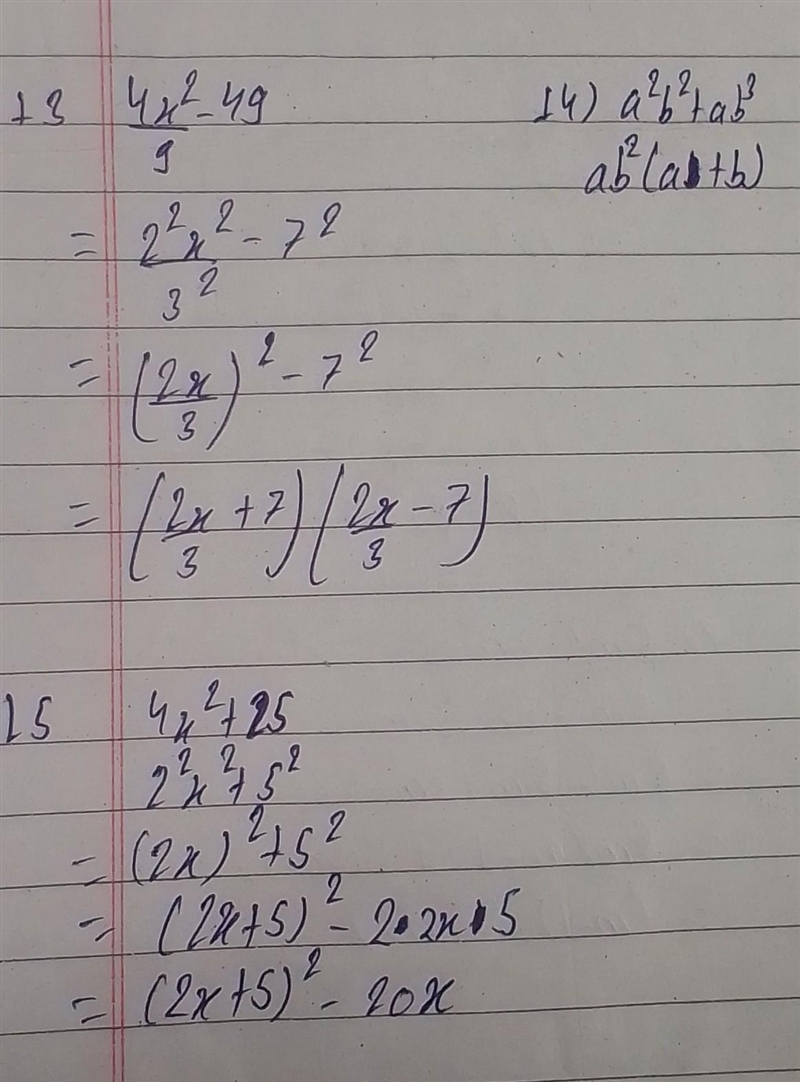 13 4x²/9 - 49
= 2²x²/3² - 7²
= (2x/3)² - 7²
= (2x/3 + 7) (2x/3 - 7)
14) a²b² + ab³
ab²(a + b)
15 4x² + 25
2²x² + 5²
= (2x)² + 5²
= (2x+5)² - 2·2x·5
= (2x+5)² - 20x